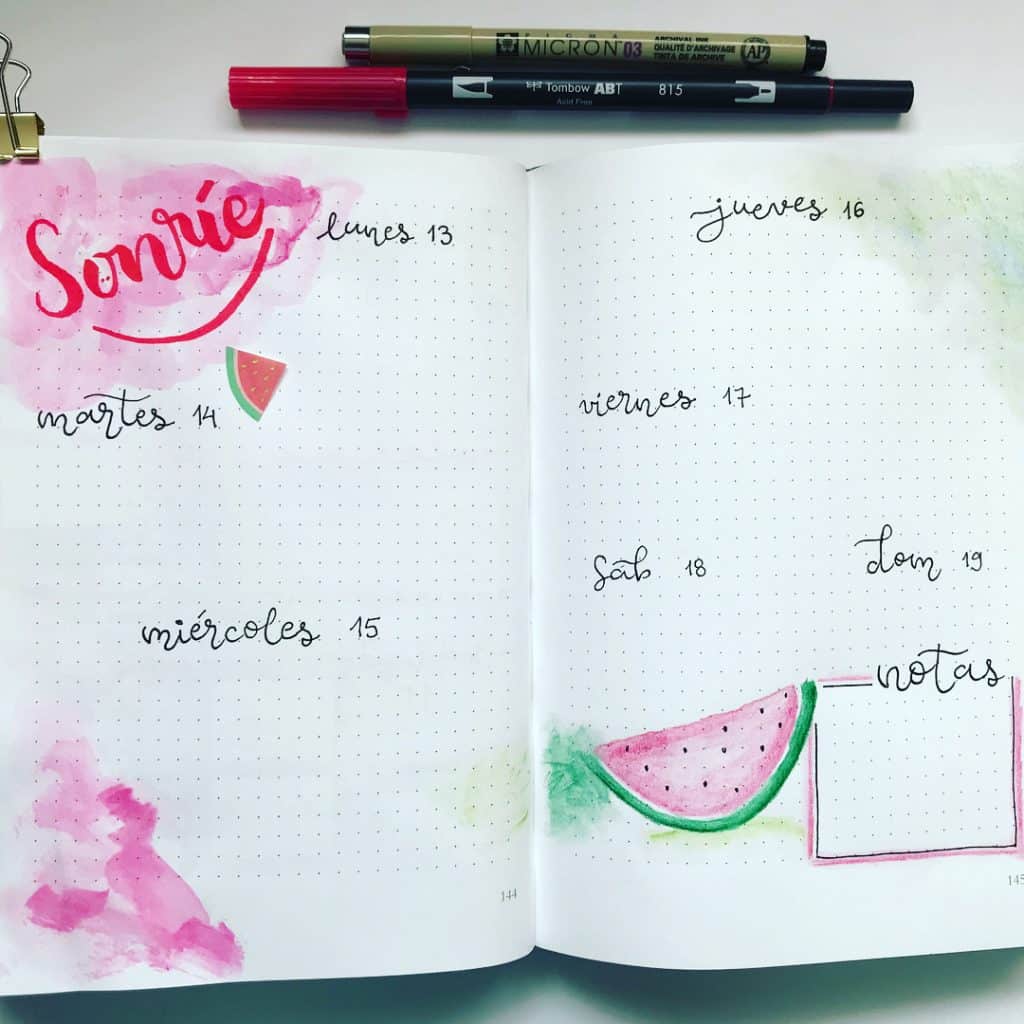 PIGMA
MICRON 03
ARCHIVAL INK
QUALITÉ D'ARCHIVAGE
TINTA DE ARCHIVE
AP
Tombow ABT 815
Acid Free
Sonríe
lunes 13
martes 14
miércoles 15
144
jueves 16
viernes 17
sáb 18
dom 19
notas
145